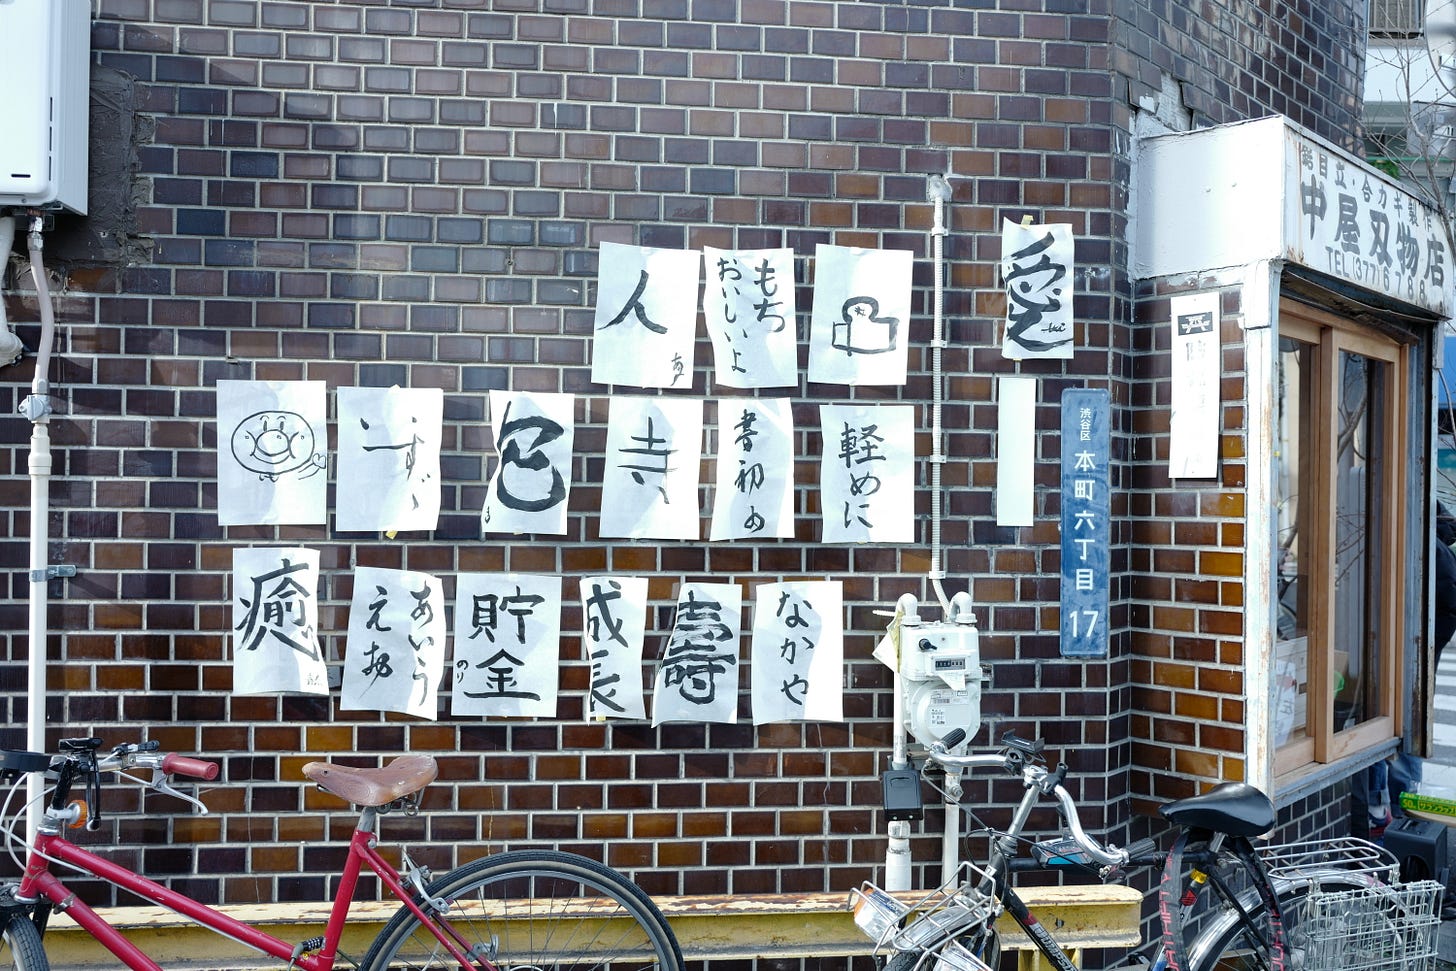 人
もち
おいしいよ
愛
包
書初め
軽めに
癒
あいう
えお
貯金
のり
成長
壽
なかや
渋谷区
本町六丁目
17
鋸目立・合カギ製
中屋刃物店
TEL(377)6788